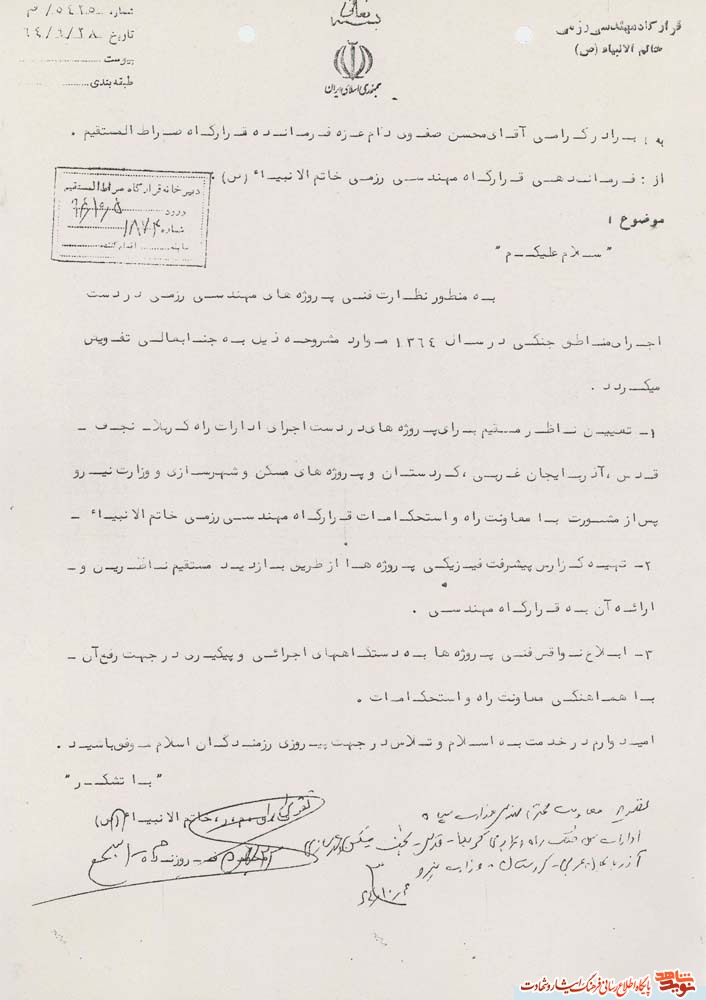 بسمه تعالی
جمهوری اسلامی ایران
قرارگاه مهندسی رزمی
خاتم الانبیاء (ص)
شماره ۵۴۲۵/م
تاریخ ۶۴/۶/۲۸
پیوست
طبقه بندی
به : برادر گرامی آقای محسن صفوی دام عزه فرمانده قرارگاه صراط المستقیم .
از : فرماندهی قرارگاه مهندسی رزمی خاتم الانبیاء (ص) .
موضوع :
دبیرخانه قرارگاه صراط المستقیم
ورود
شماره ۱۸۷۴
سابقه اقدام کننده
" سلام علیکم "
به منظور نظارت فنی پروژه های مهندسی رزمی در دست
اجرای مناطق جنگی در سال ۱۳۶۴ موارد مشروحه ذیل به جنابعالی تفویض
میگردد .
۱- تعیین ناظر مقیم برای پروژه های در دست اجرای ادارات راه کربلا - نجف -
قدس ، آذربایجان غربی ، کردستان و پروژه های مسکن و شهرسازی و وزارت نیرو
پس از مشورت با معاونت راه و استحکامات قرارگاه مهندسی رزمی خاتم الانبیاء -
۲- تهیه گزارش پیشرفت فیزیکی پروژه ها از طریق بازدید مستقیم ناظرین و -
ارائه آن به قرارگاه مهندسی .
۳- ابلاغ نواقص فنی پروژه ها به دستگاههای اجرائی و پیگیری در جهت رفع آن -
با هماهنگی معاونت راه و استحکامات .
امیدوارم در خدمت به اسلام و تلاش در جهت پیروزی رزمندگان اسلام موفق باشید .
" با تشکر "
خاتم الانبیاء (ص)
معاونت محترم مهندسی وزارت سپاه
ادارات راه و ترابری کربلا - قدس - نجف مسکن و شهرسازی
آذربایجان غربی - کردستان وزارت نیرو
نوید شاهد
پایگاه اطلاع رسانی فرهنگ ایثار و شهادت